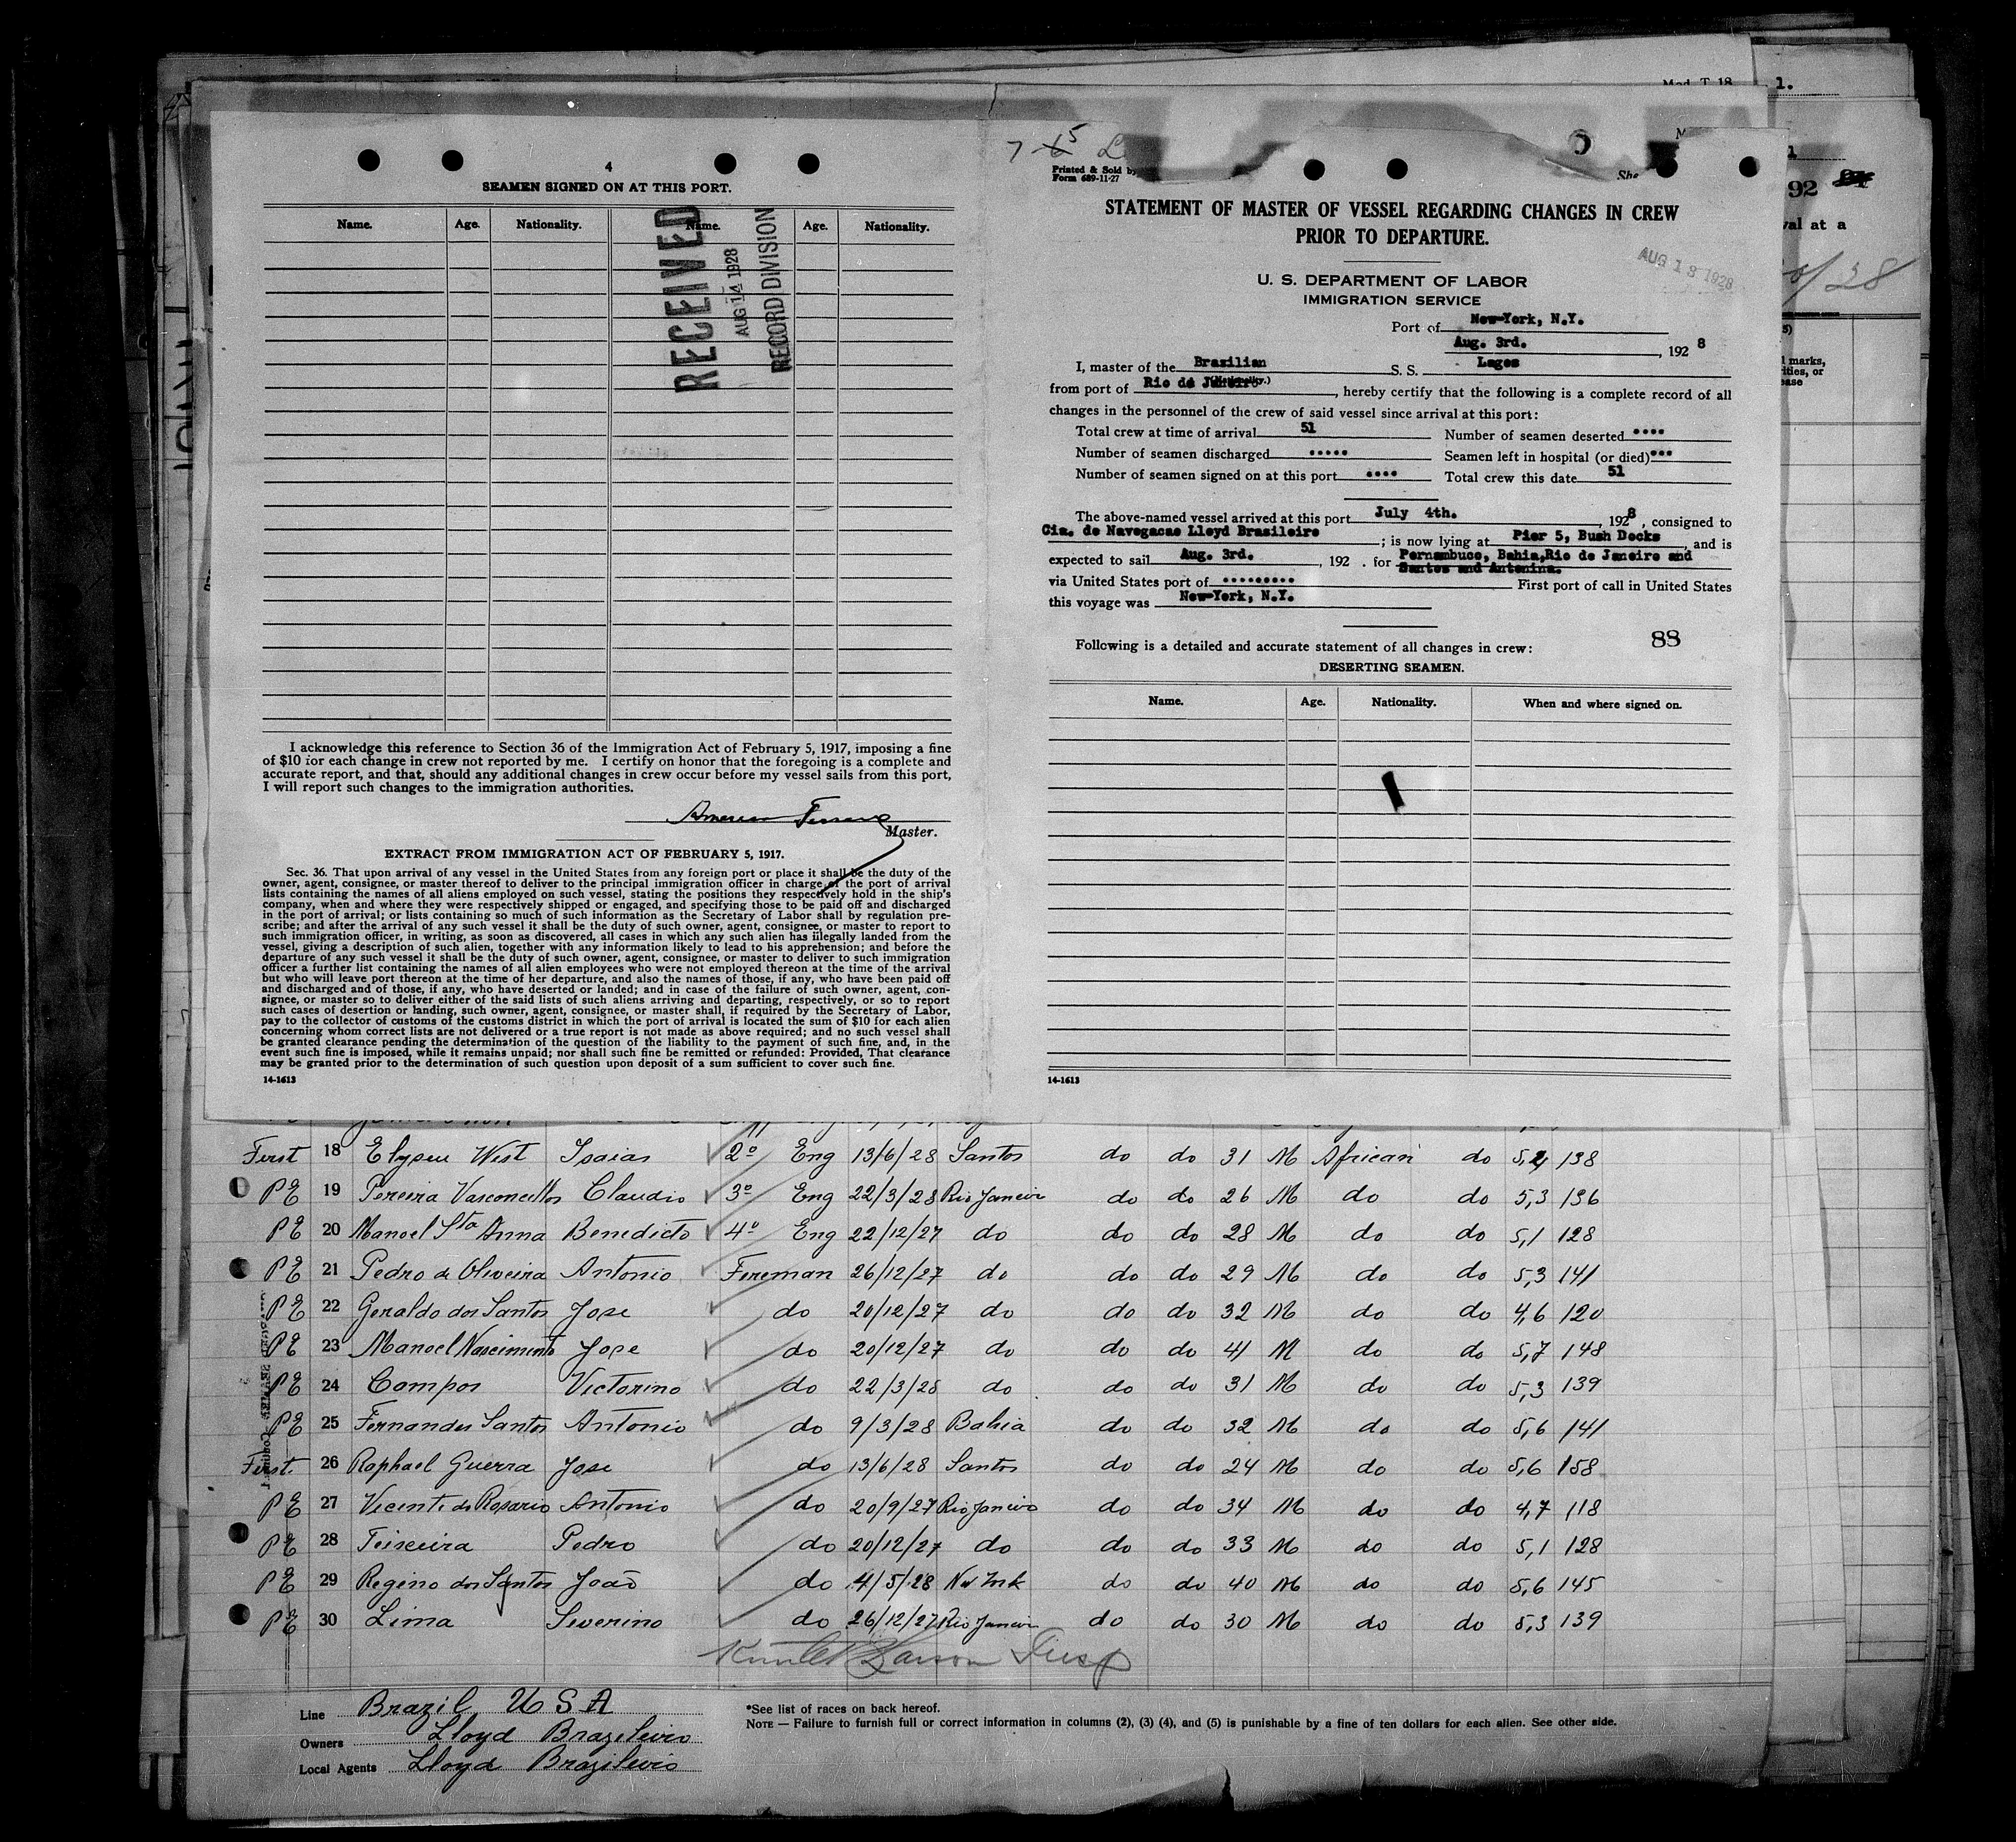 4
SEAMEN SIGNED ON AT THIS PORT.
Name. Age. Nationality. Name. Age. Nationality.
RECEIVED
AUG 14 1928
RECORD DIVISION
I acknowledge this reference to Section 36 of the Immigration Act of February 5, 1917, imposing a fine
of $10 for each change in crew not reported by me. I certify on honor that the foregoing is a complete and
accurate report, and that, should any additional changes in crew occur before my vessel sails from this port,
I will report such changes to the immigration authorities.
Master.
EXTRACT FROM IMMIGRATION ACT OF FEBRUARY 5, 1917.
Sec. 36. That upon arrival of any vessel in the United States from any foreign port or place it shall be the duty of the
owner, agent, consignee, or master thereof to deliver to the principal immigration officer in charge of the port of arrival
lists containing the names of all aliens employed on such vessel, stating the positions they respectively hold in the ship's
company, when and where they were respectively shipped or engaged, and specifying those to be paid off and discharged
in the port of arrival; or lists containing so much of such information as the Secretary of Labor shall by regulation pre-
scribe; and after the arrival of any such vessel it shall be the duty of such owner, agent, consignee, or master to report to
such immigration officer, in writing, as soon as discovered, all cases in which any such alien has illegally landed from the
vessel, giving a description of such alien, together with any information likely to lead to his apprehension; and before the
departure of any such vessel it shall be the duty of such owner, agent, consignee, or master to deliver to such immigration
officer a further list containing the names of all alien employees who were not employed thereon at the time of the arrival
but who will leave port thereon at the time of her departure, and also the names of those, if any, who have been paid off
and discharged and of those, if any, who have deserted or landed; and in case of the failure of such owner, agent, con-
signee, or master so to deliver either of the said lists of such aliens arriving and departing, respectively, or so to report
such cases of desertion or landing, such owner, agent, consignee, or master shall, if required by the Secretary of Labor,
pay to the collector of customs of the customs district in which the port of arrival is located the sum of $10 for each alien
concerning whom correct lists are not delivered or a true report is not made as above required; and no such vessel shall
be granted clearance pending the determination of the question of the liability to the payment of such fine, and, in the
event such fine is imposed, while it remains unpaid; nor shall such fine be remitted or refunded: Provided, That clearance
may be granted prior to the determination of such question upon deposit of a sum sufficient to cover such fine.
14-1613
Printed & Sold by
Form 689-11-27
She
STATEMENT OF MASTER OF VESSEL REGARDING CHANGES IN CREW
PRIOR TO DEPARTURE.
AUG 13 1928
U. S. DEPARTMENT OF LABOR
IMMIGRATION SERVICE
Port of New-York, N.Y.
Aug. 3rd. , 192 8
I, master of the Brazilian S. S. Lages
(Nationality.)
from port of Rio de Janeiro , hereby certify that the following is a complete record of all
changes in the personnel of the crew of said vessel since arrival at this port:
Total crew at time of arrival 51 Number of seamen deserted ....
Number of seamen discharged ..... Seamen left in hospital (or died) ...
Number of seamen signed on at this port .... Total crew this date 51
The above-named vessel arrived at this port July 4th. , 1928 , consigned to
Cia. de Navegacao Lloyd Brasileiro ; is now lying at Pier 5, Bush Docks , and is
expected to sail Aug. 3rd. , 192 . for Pernambuco, Bahia,Rio de Janeiro and
Santos and Antonina.
via United States port of ......... First port of call in United States
this voyage was New-York, N.Y.
88
Following is a detailed and accurate statement of all changes in crew:
DESERTING SEAMEN.
Name. Age. Nationality. When and where signed on.
14-1613
1.
92
val at a
l marks,
ities, or
ease
First 18 Elyseu West Isaias 2º Eng 13/6/28 Santos do do 31 M African do 5,2 138
PE 19 Pereira Vasconcellos Claudio 3º Eng 22/3/28 Rio Janeiro do do 26 M do do 5,3 136
PE 20 Manoel Sta Anna Benedicto 4º Eng 22/12/27 do do do 28 M do do 5,1 128
PE 21 Pedro de Oliveira Antonio Fireman 26/12/27 do do do 29 M do do 5,3 141
PE 22 Geraldo dos Santos Jose do 20/12/27 do do do 32 M do do 4,6 120
PE 23 Manoel Nascimento Jose do 20/12/27 do do do 41 M do do 5,7 148
PE 24 Campos Victorino do 22/3/28 do do do 31 M do do 5,3 139
PE 25 Fernandes Santos Antonio do 9/3/28 Bahia do do 32 M do do 5,6 141
First 26 Raphael Guerra Jose do 13/6/28 Santos do do 24 M do do 5,6 158
PE 27 Vicente do Rosario Antonio do 20/9/27 Rio Janeiro do do 34 M do do 4,7 118
PE 28 Teixeira Pedro do 20/12/27 do do do 33 M do do 5,1 128
PE 29 Regino dos Santos João do 4/5/28 New York do do 40 M do do 5,6 145
PE 30 Lima Severino do 26/12/27 Rio Janeiro do do 30 M do do 5,3 139
Line Brazil U S A
Owners Lloyd Brazileiro
Local Agents Lloyd Brazileiro
*See list of races on back hereof.
NOTE — Failure to furnish full or correct information in columns (2), (3) (4), and (5) is punishable by a fine of ten dollars for each alien. See other side.